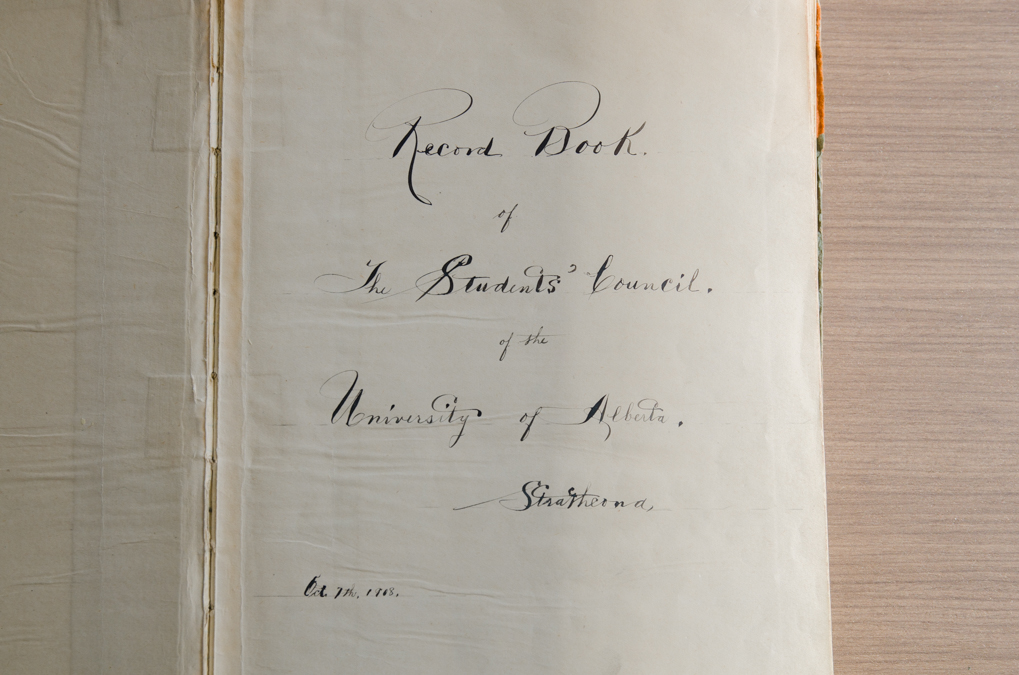 Record Book.
of
The Students' Council.
of the
University of Alberta.
Strathcona,
Oct. 7th, 1908.